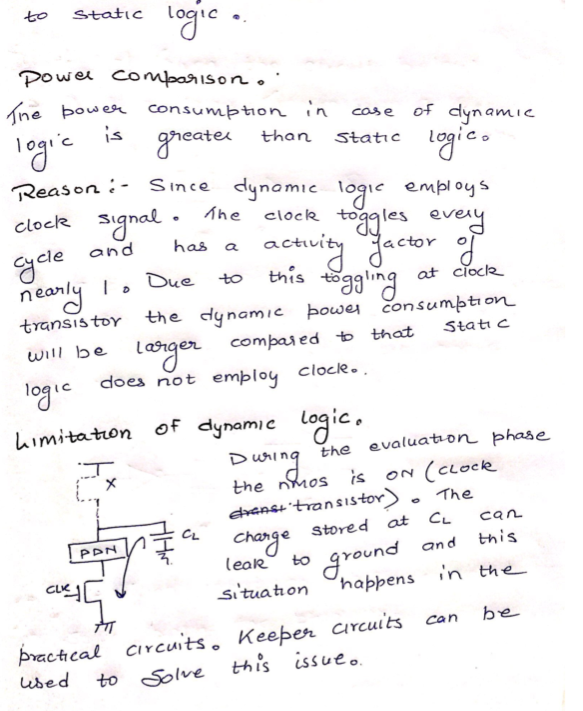 to static logic.
Power Comparison.
The power consumption in case of dynamic
logic is greater than static logic.
Reason:- Since dynamic logic employs
clock signal. The clock toggles every
cycle and has a activity factor of
nearly 1. Due to this toggling at clock
transistor the dynamic power consumption
will be larger compared to that static
logic does not employ clock.
Limitation of dynamic logic.
During the evaluation phase
the nmos is ON (clock
transistor). The
charge stored at CL can
leak to ground and this
situation happens in the
X
CL
PDN
CLK
practical circuits. Keeper circuits can be
used to solve this issue.